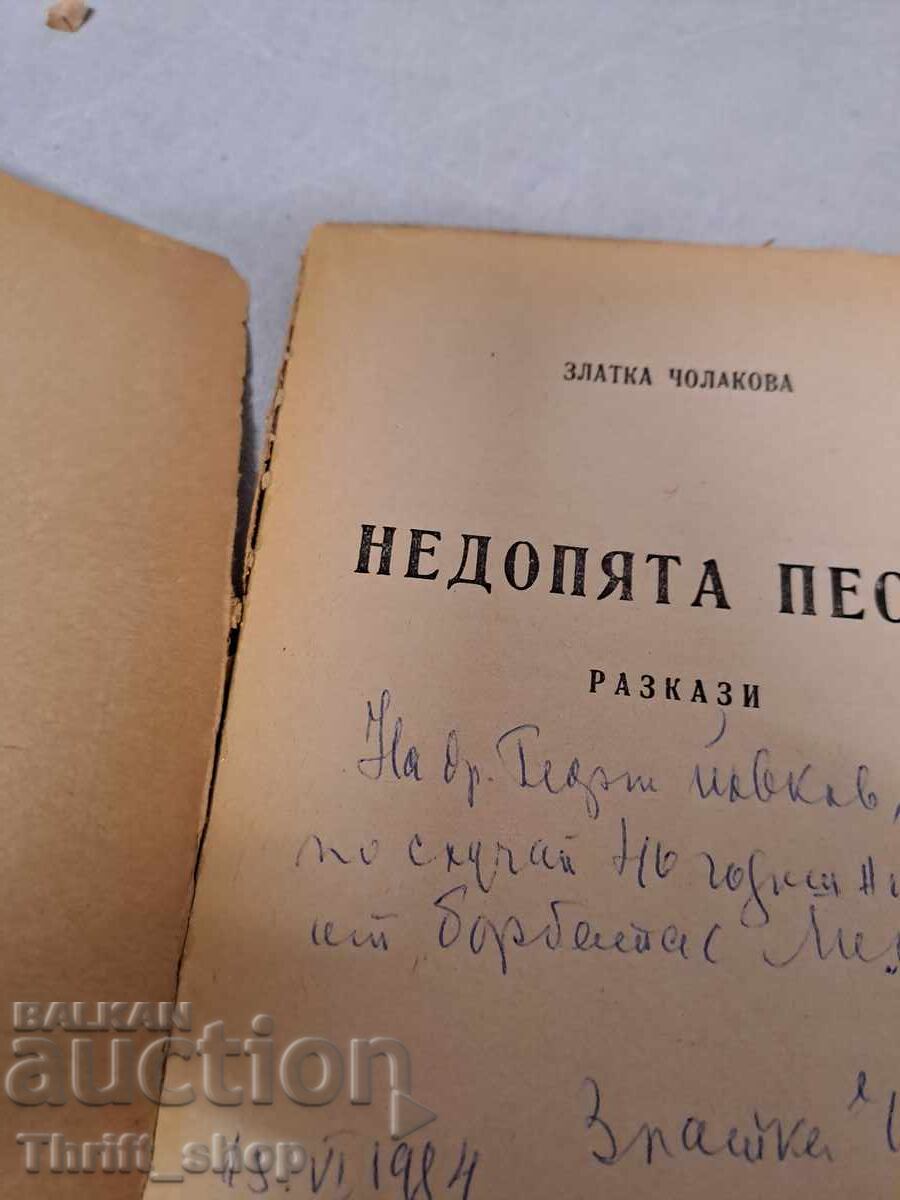 ЗЛАТКА ЧОЛАКОВА
НЕДОПЯТА ПЕС
РАЗКАЗИ
На др. Георги Йовков,
по случай 40 годишн
от борбата с
Златка
13. VI 1984
BALKAN
auction
Thrift_shop